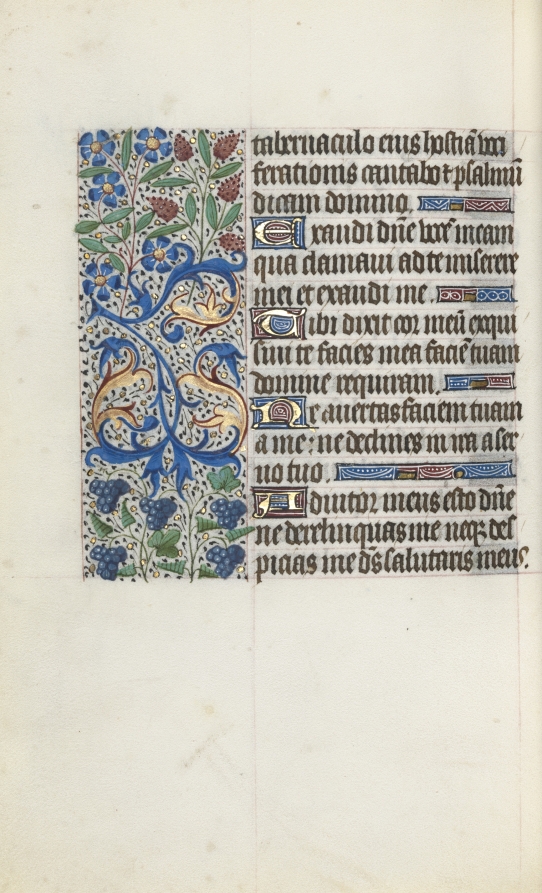 tabernaculo eius hostiā voci
ferationis cantabo ⁊ psalmū
dicam domino.
Exaudi dn̄e voc̄ meam
qua clamaui ad te miserere
mei et exaudi me.
Tibi dixit cor meū exqui
siui te facies mea faciē tuam
domine requiram.
Ne auertas faciem tuam
a me: ne declines in ira a ser
uo tuo.
Adiutor meus esto dn̄e
ne derelinquas me neqꝫ des
picias me d̄s salutaris meus.